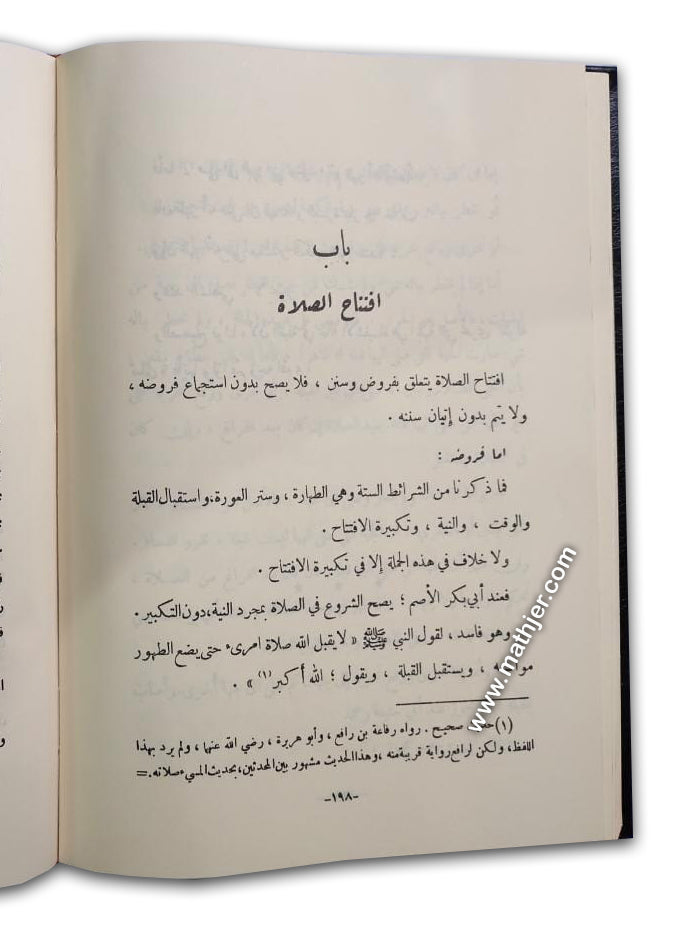 باب
افتتاح الصلاة
افتتاح الصلاة يتعلق بفروض وسنن ، فلا يصح بدون استجماع فروضه ،
ولا يتم بدون إتيان سننه .
اما فروضه :
فما ذكرنا من الشرائط الستة وهي الطهارة ، وستر العورة ، واستقبال القبلة
والوقت ، والنية ، وتكبيرة الافتتاح .
ولا خلاف في هذه الجملة إلا في تكبيرة الافتتاح .
فعند أبي بكر الأصم ؛ يصح الشروع في الصلاة بمجرد النية ، دون التكبير .
وهو فاسد ، لقول النبي ﷺ « لا يقبل الله صلاة امرىء حتى يضع الطهور
، ويستقبل القبلة ، ويقول ؛ الله أكبر (١) » .
(١) صحيح . رواه رفاعة بن رافع ، وأبو هريرة ، رضي الله عنهما ، ولم يرد بهذا
اللفظ ، ولكن لرافع رواية قريبة منه ، وهذا الحديث مشهور بين المحدثين ، بحديث المسيء صلاته . =
-١٩٨-
www.mathjer.com